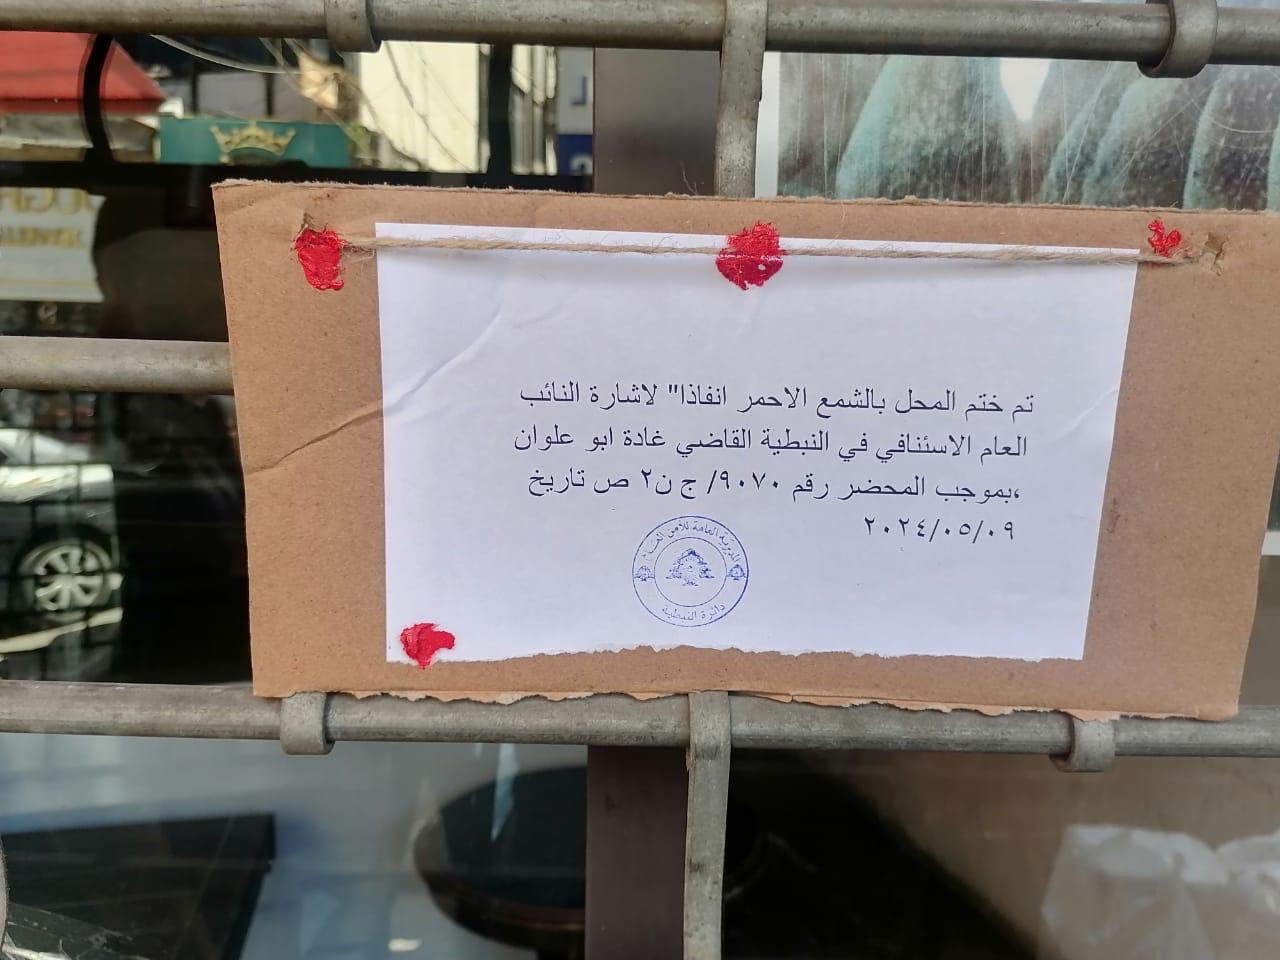 تم ختم المحل بالشمع الاحمر انفاذا" لاشارة النائب
العام الاسئنافي في النبطية القاضي غادة ابو علوان
،بموجب المحضر رقم ٩٠٧٠/ ج ن٢ ص تاريخ
٢٠٢٤/٠٥/٠٩
المديرية العامة للأمن العام
دائرة النبطية